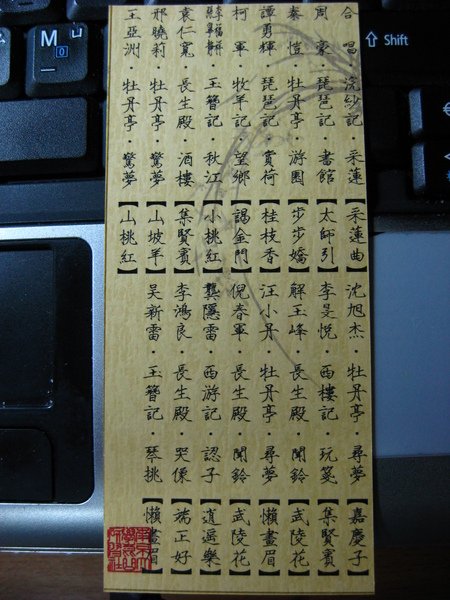 合唱 浣紗記·采蓮【采蓮曲】
周豪 琵琶記·書館【太師引】
秦愷·牡丹亭·游園【步步嬌】
譚勇輝·琵琶記·賞荷【桂枝香】
柯軍·牧羊記·望鄉【謁金門】
玉簪記·秋江【小桃紅】
袁仁寬·長生殿·酒樓【集賢賓】
邢曉莉·牡丹亭·驚夢【山坡羊】
王亞洲·牡丹亭·驚夢【山桃紅】
沈旭杰·牡丹亭·尋夢【嘉慶子】
李旻悅·西樓記·玩箋【集賢賓】
解玉峰·長生殿·聞鈴【武陵花】
汪小丹·牡丹亭·尋夢【懶畫眉】
倪春軍·長生殿·聞鈴【武陵花】
龔隱雷·西游記·認子【逍遙樂】
李鴻良·長生殿·哭像【端正好】
吳新雷·玉簪記·琴挑【懶畫眉】
M
Shift